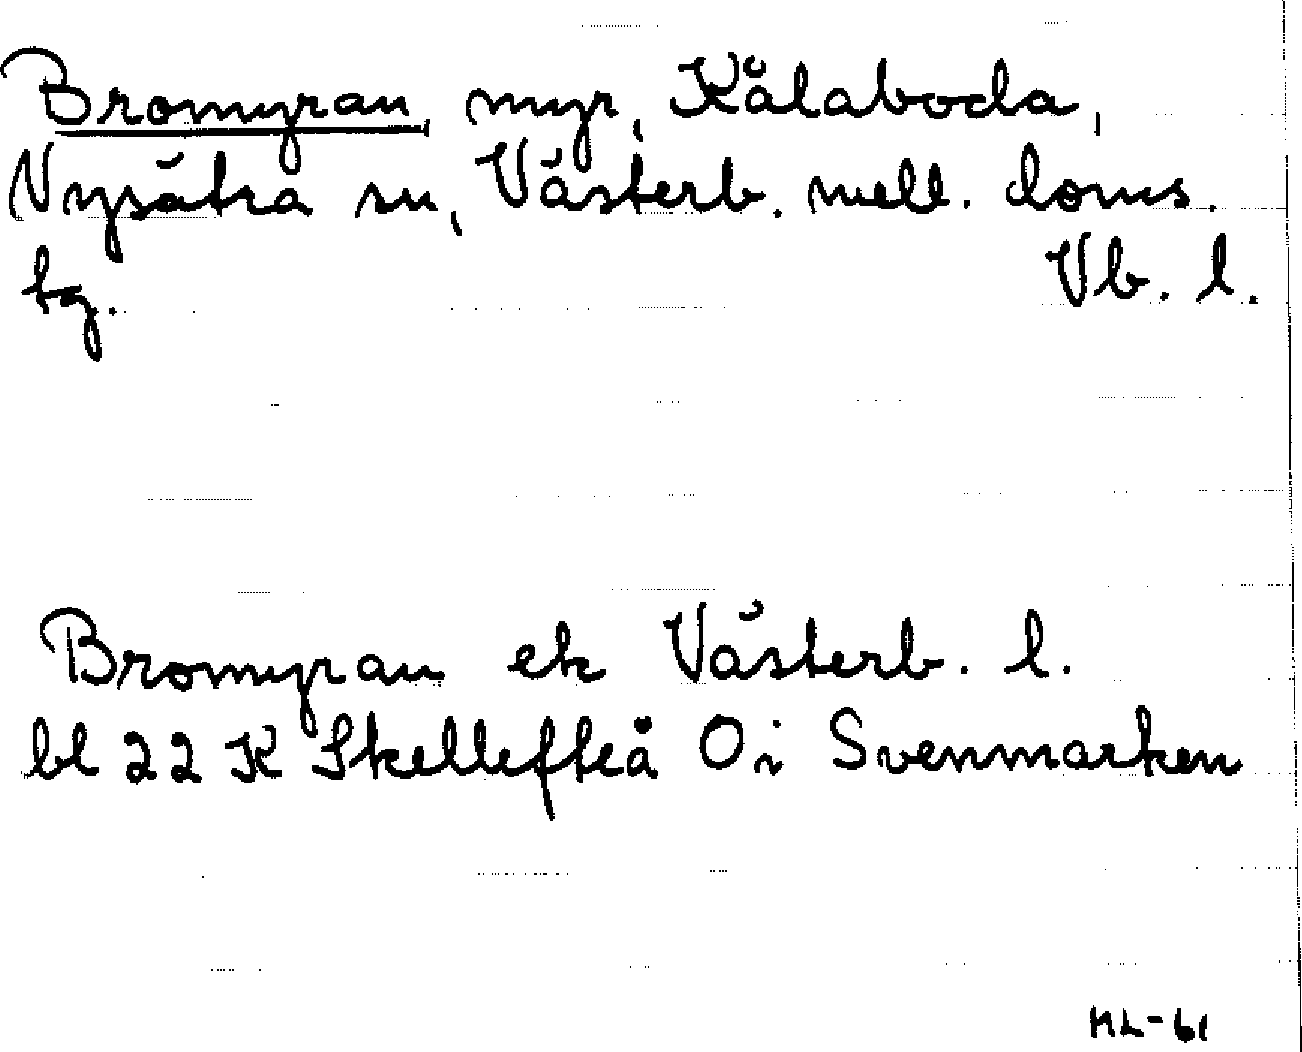 Bromyran, myr, Kålaboda,
Nysätra sn, Västerb. mell. doms.
tg. Vb. l.
Bromyran ek Västerb. l.
bl 22 K Skellefteå Oi Svenmarken
ML-61